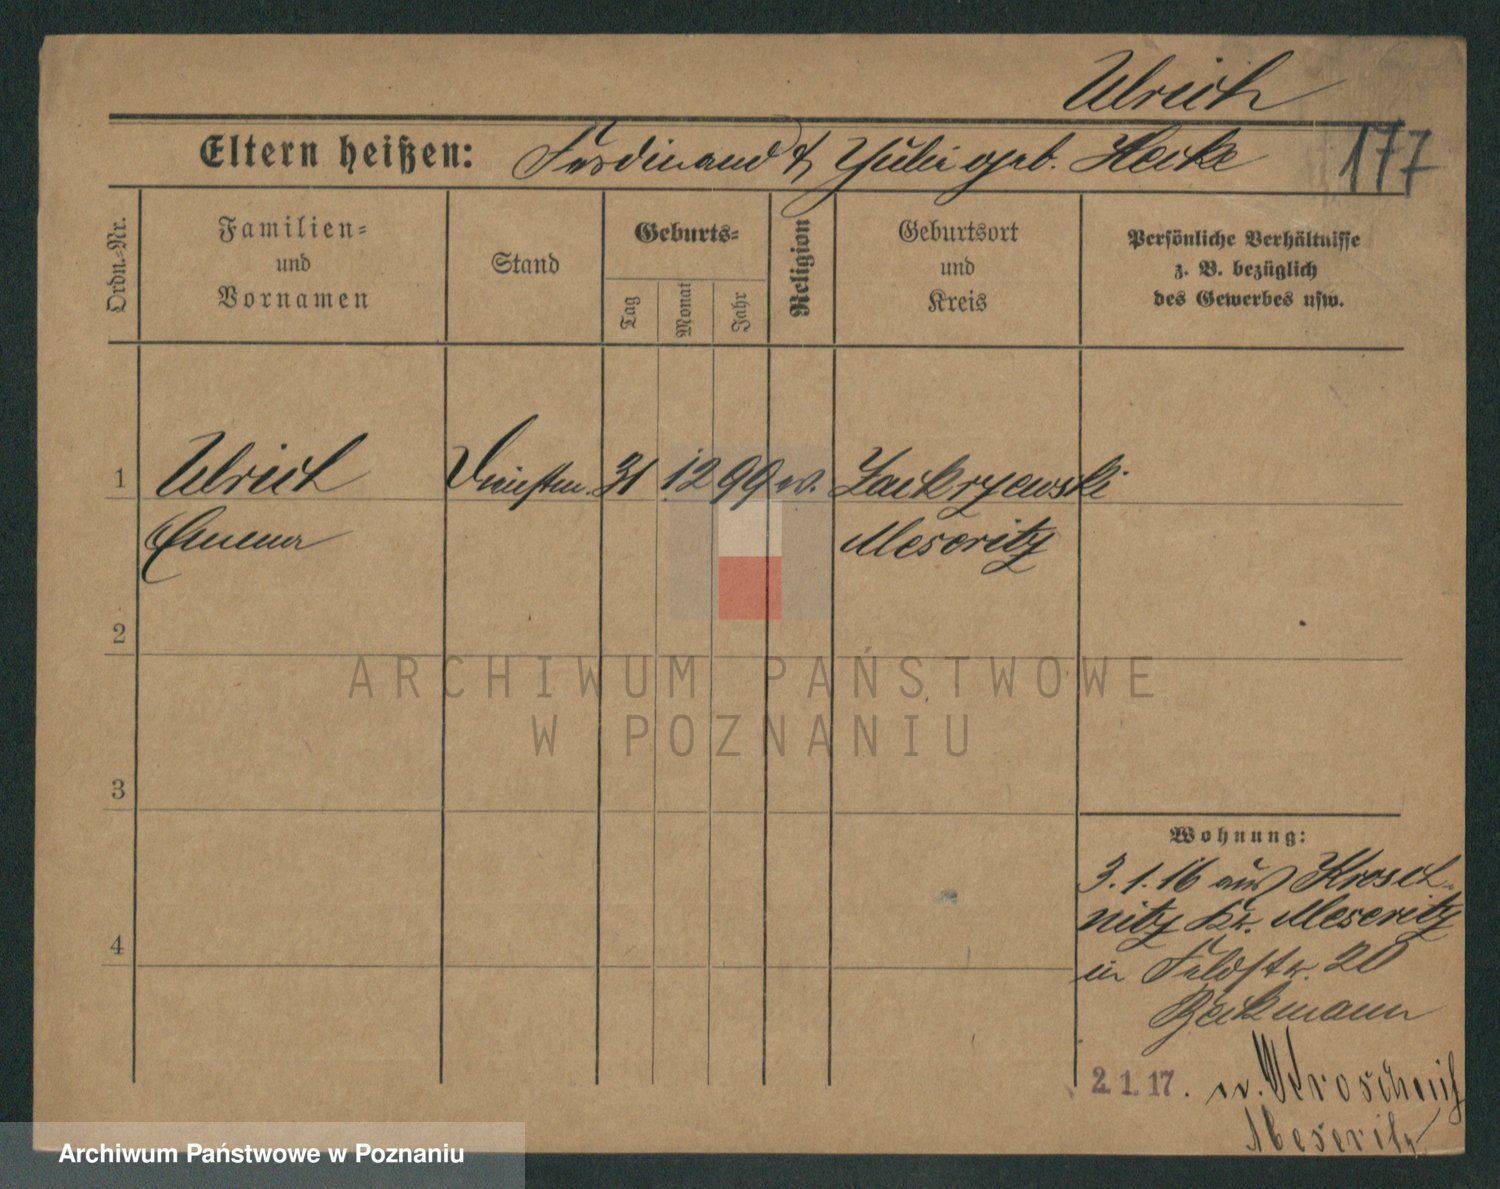 Ulrich
177
Eltern heißen: Ferdinand & Juli geb. Hecke
Ordn.-Nr.
Familien-
und
Vornamen
Stand
Geburts-
Tag
Monat
Jahr
Religion
Geburtsort
und
Kreis
Persönliche Verhältnisse
z. B. bezüglich
des Gewerbes usw.
1 Ulrich Dienstm. 31 12 99 ev.
Emma Meseritz
2
3
4
Wohnung:
3.1.16 aus Krosch-
nitz Kr. Meseritz
in Feldstr. 20
Beckmann
2.1.17. n. Kroschnitz
Meseritz
ARCHIWUM PAŃSTWOWE
W POZNANIU
Archiwum Państwowe w Poznaniu